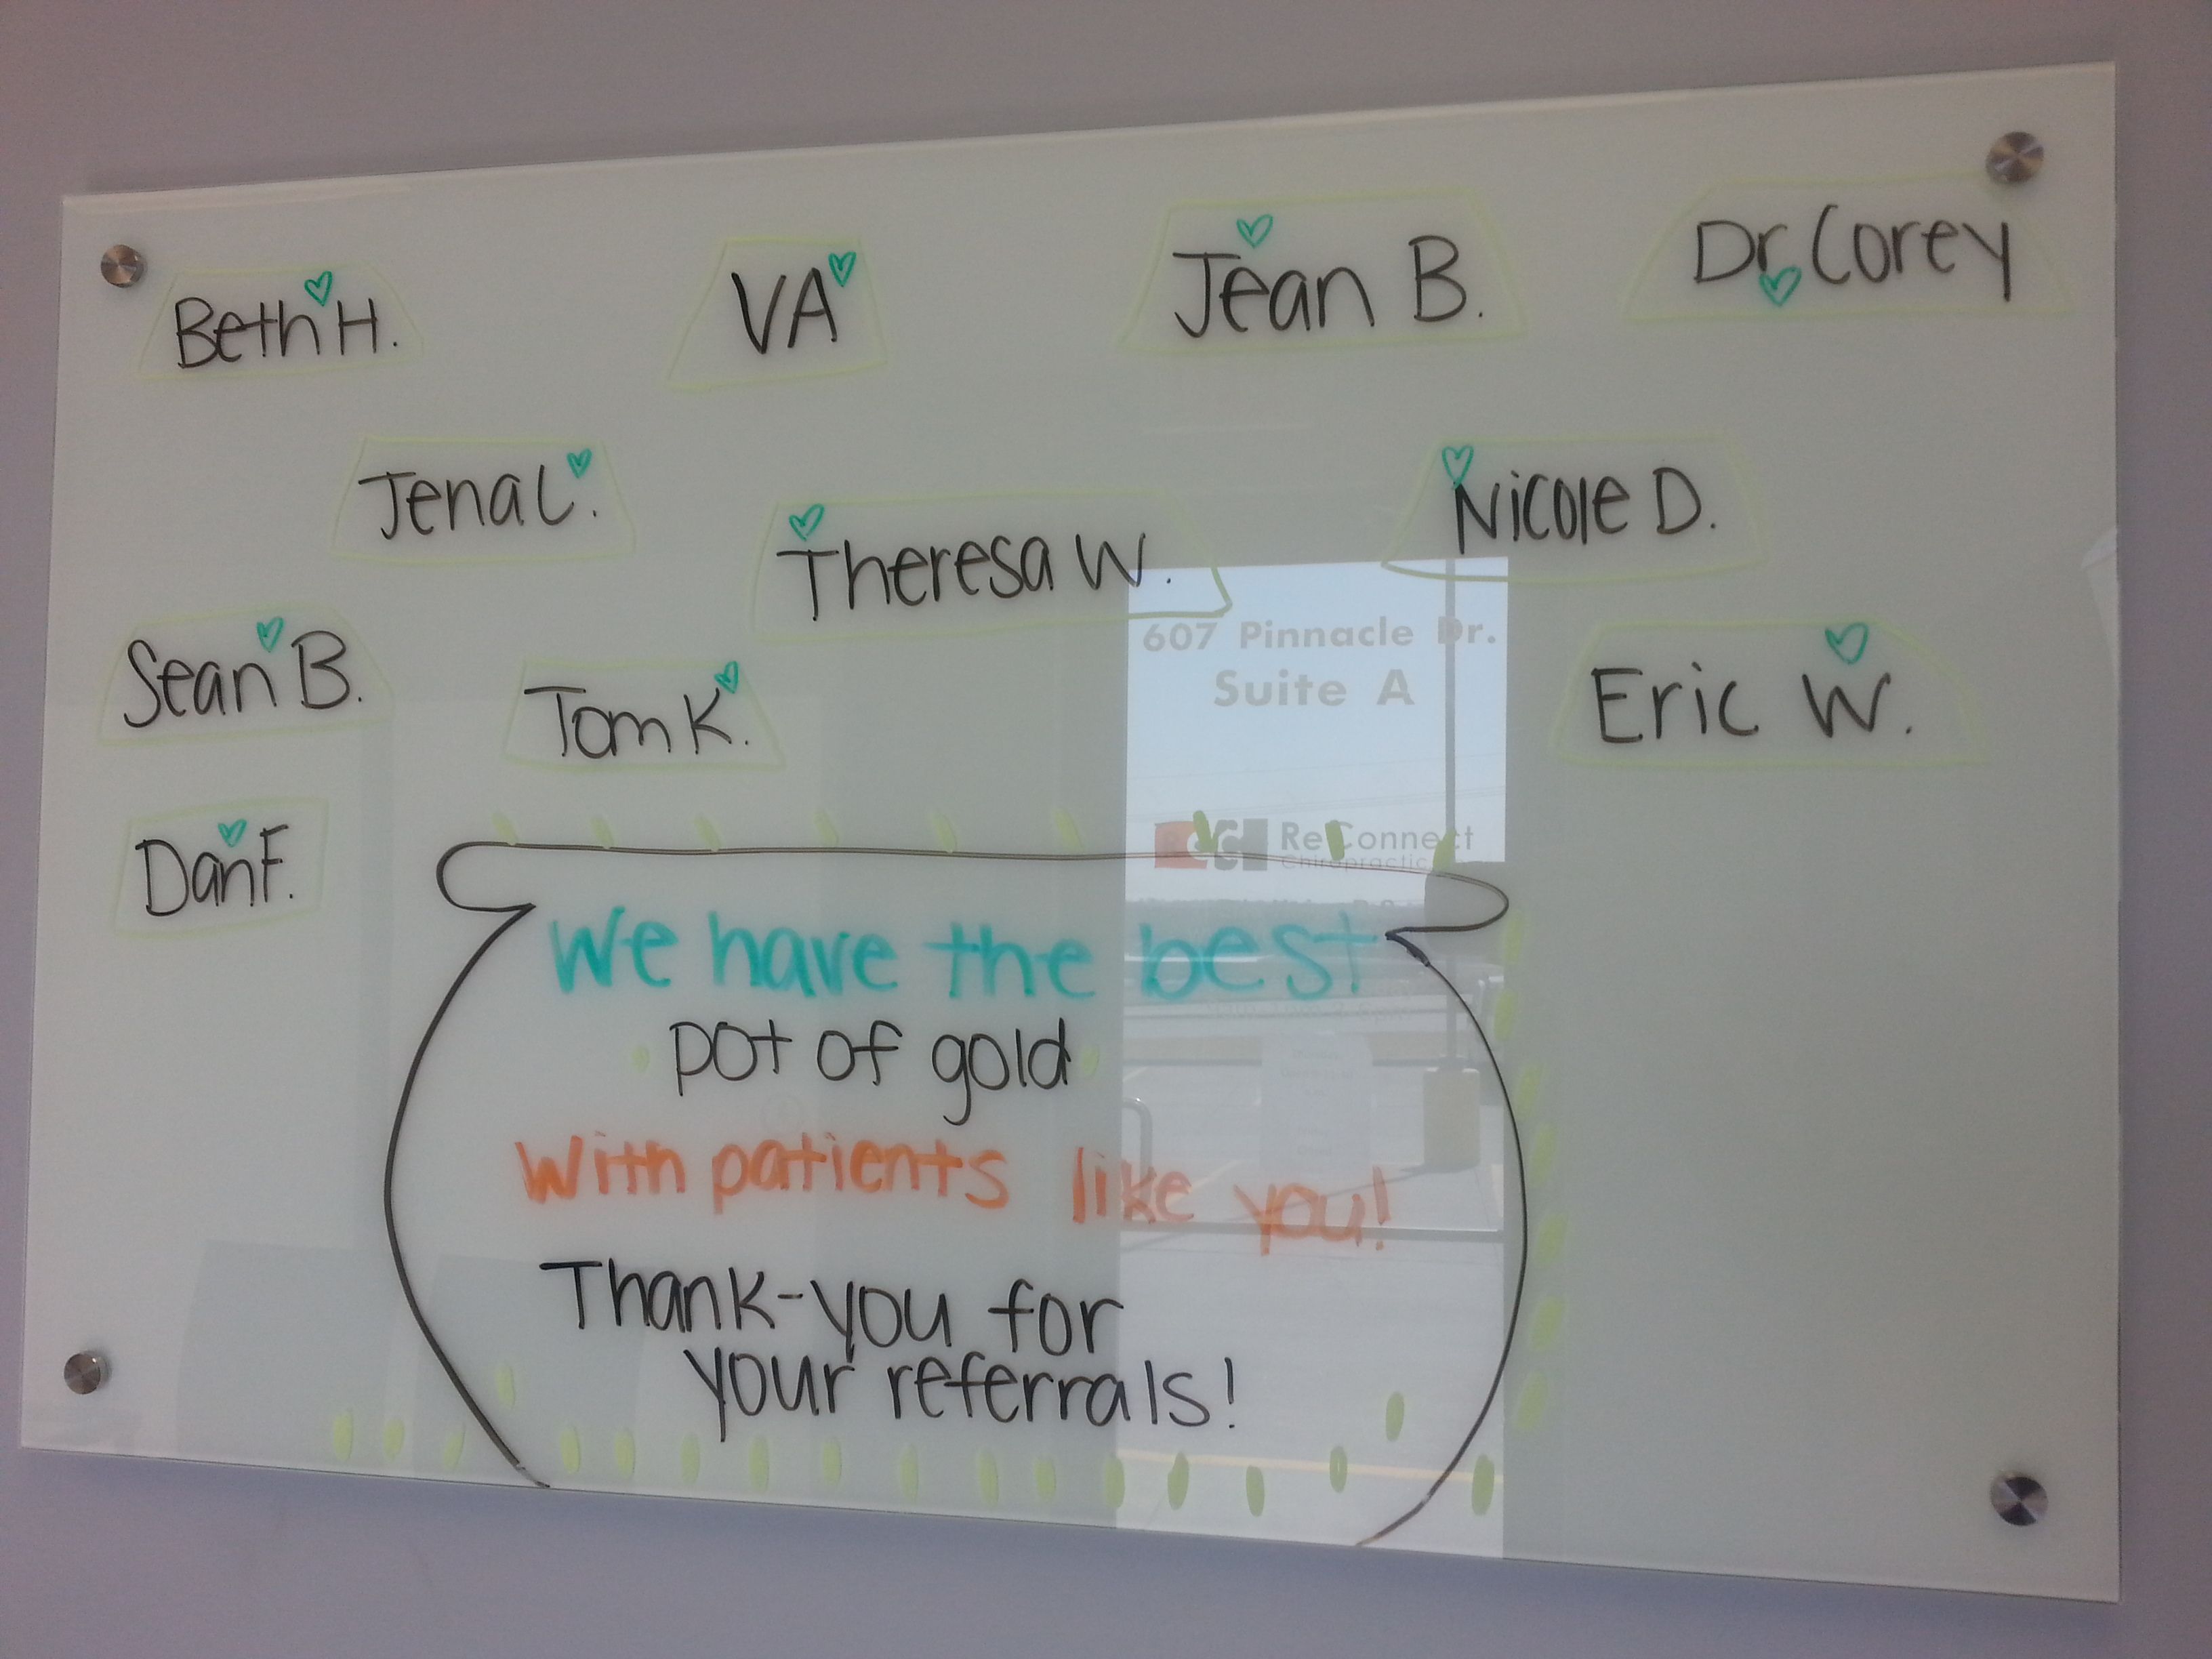 Beth H.
VA
Jean B.
Dr. Corey
Jena L.
Theresa W.
Nicole D.
Sean B.
Tom K.
Eric W.
Dan F.
607 Pinnacle Dr.
Suite A
ReConnect
Chiropractic
We have the best
pot of gold
with patients like you!
Thank-you for
your referrals!